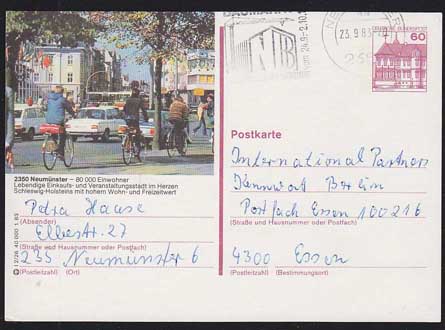 BAUMARKT
NIB
vom 24.9.-2.10.
NEUMÜNSTER
23.9.83
DEUTSCHE BUNDESPOST
60
2350 Neumünster – 80 000 Einwohner
Lebendige Einkaufs- und Veranstaltungsstadt im Herzen
Schleswig-Holsteins mit hohem Wohn- und Freizeitwert
Petra Hause
(Absender)
Elbestr. 27
(Straße und Hausnummer oder Postfach)
235 Neumünster 6
(Postleitzahl) (Ort)
Postkarte
International Partners
Kennwort Berlin
Postfach Essen 100216
(Straße und Hausnummer oder Postfach)
4300 Essen
(Postleitzahl) (Bestimmungsort)